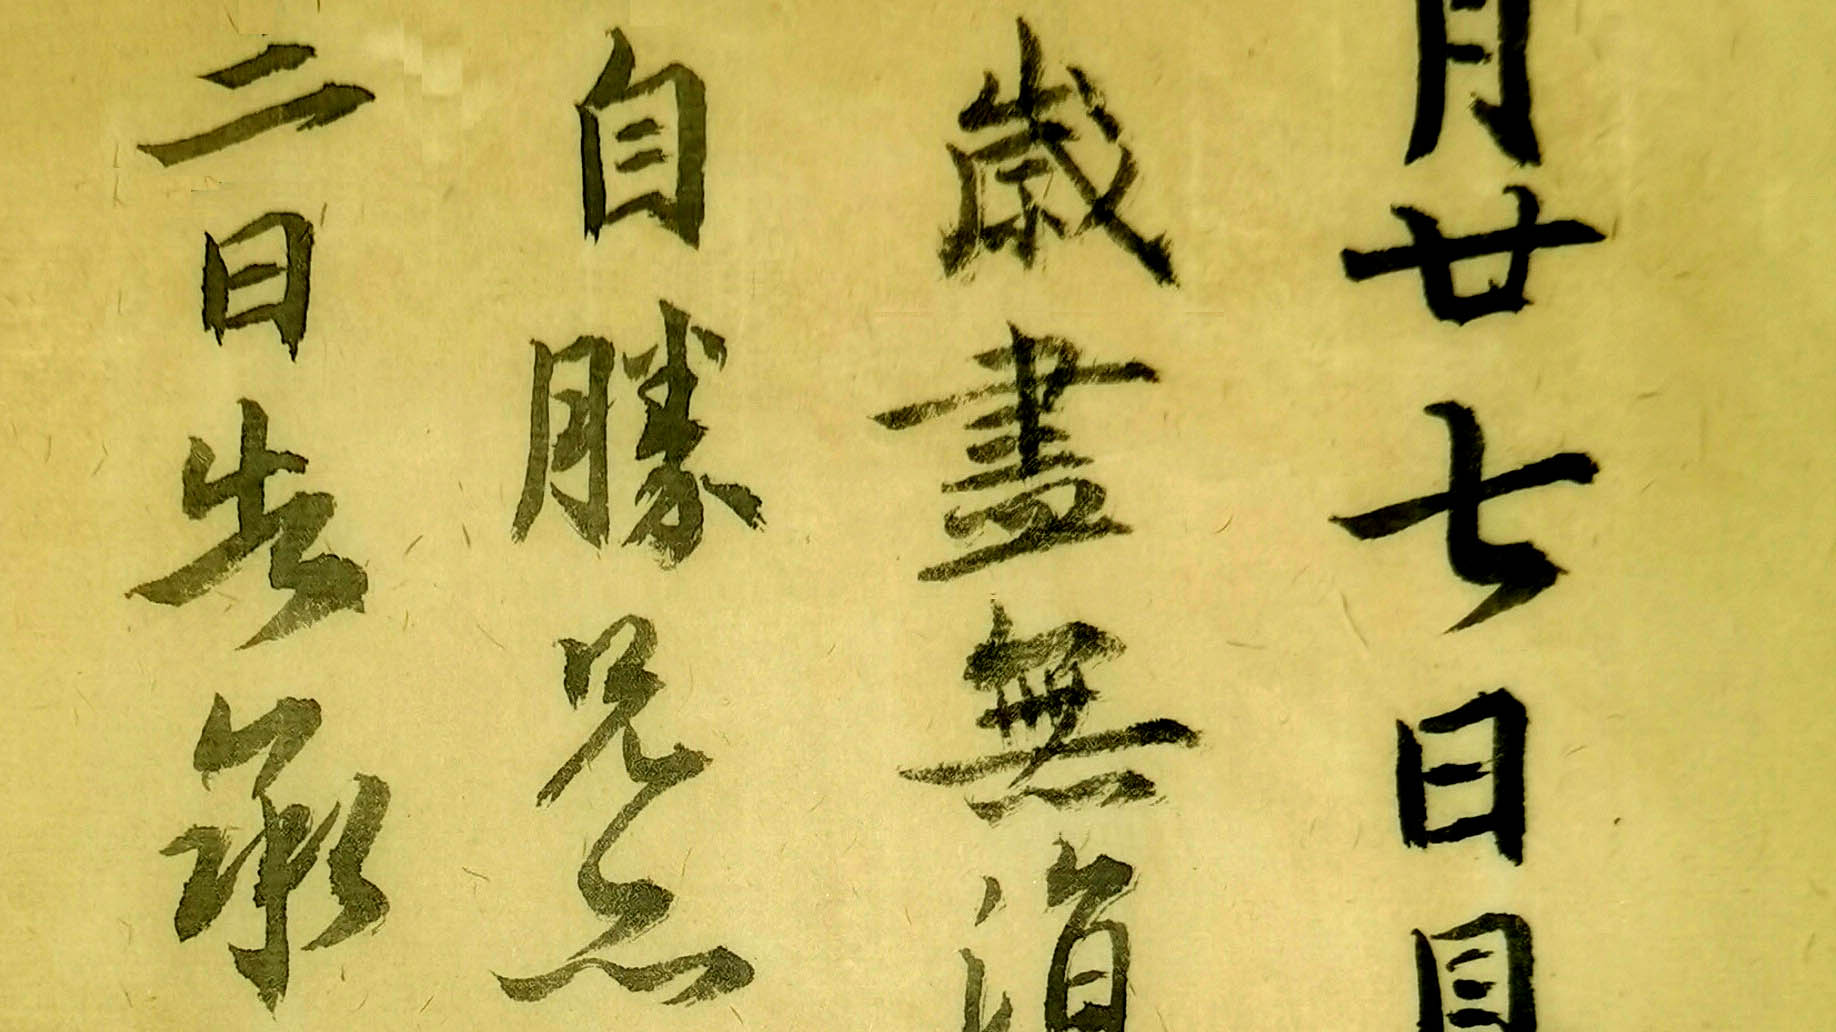 月廿七日
歲盡無
自勝兄
二日告承